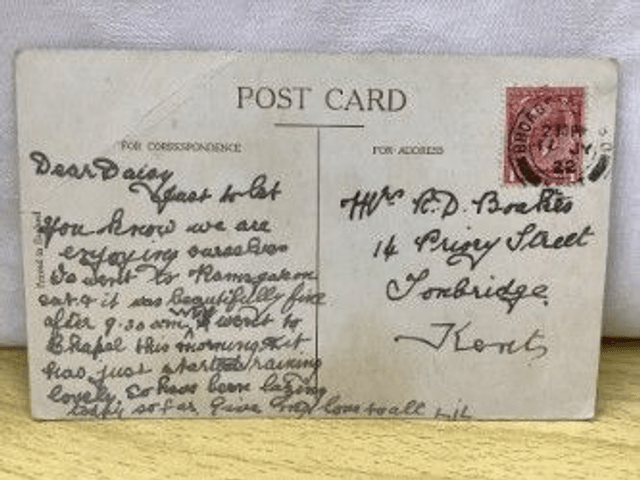 POST CARD
FOR CORRESPONDENCE
FOR ADDRESS
Dear Daisy
Just to let
you know we are
enjoying ourselves
went to Ramsgate on
sat & it was beautifully fine
after 9.30 am, went to
Chapel this morning & it
has just started raining
lovely. So have been lazing
so far. Give my love to all
Mrs R.D. Boakes
14 Priory Street
Tonbridge
Kent
JY
22